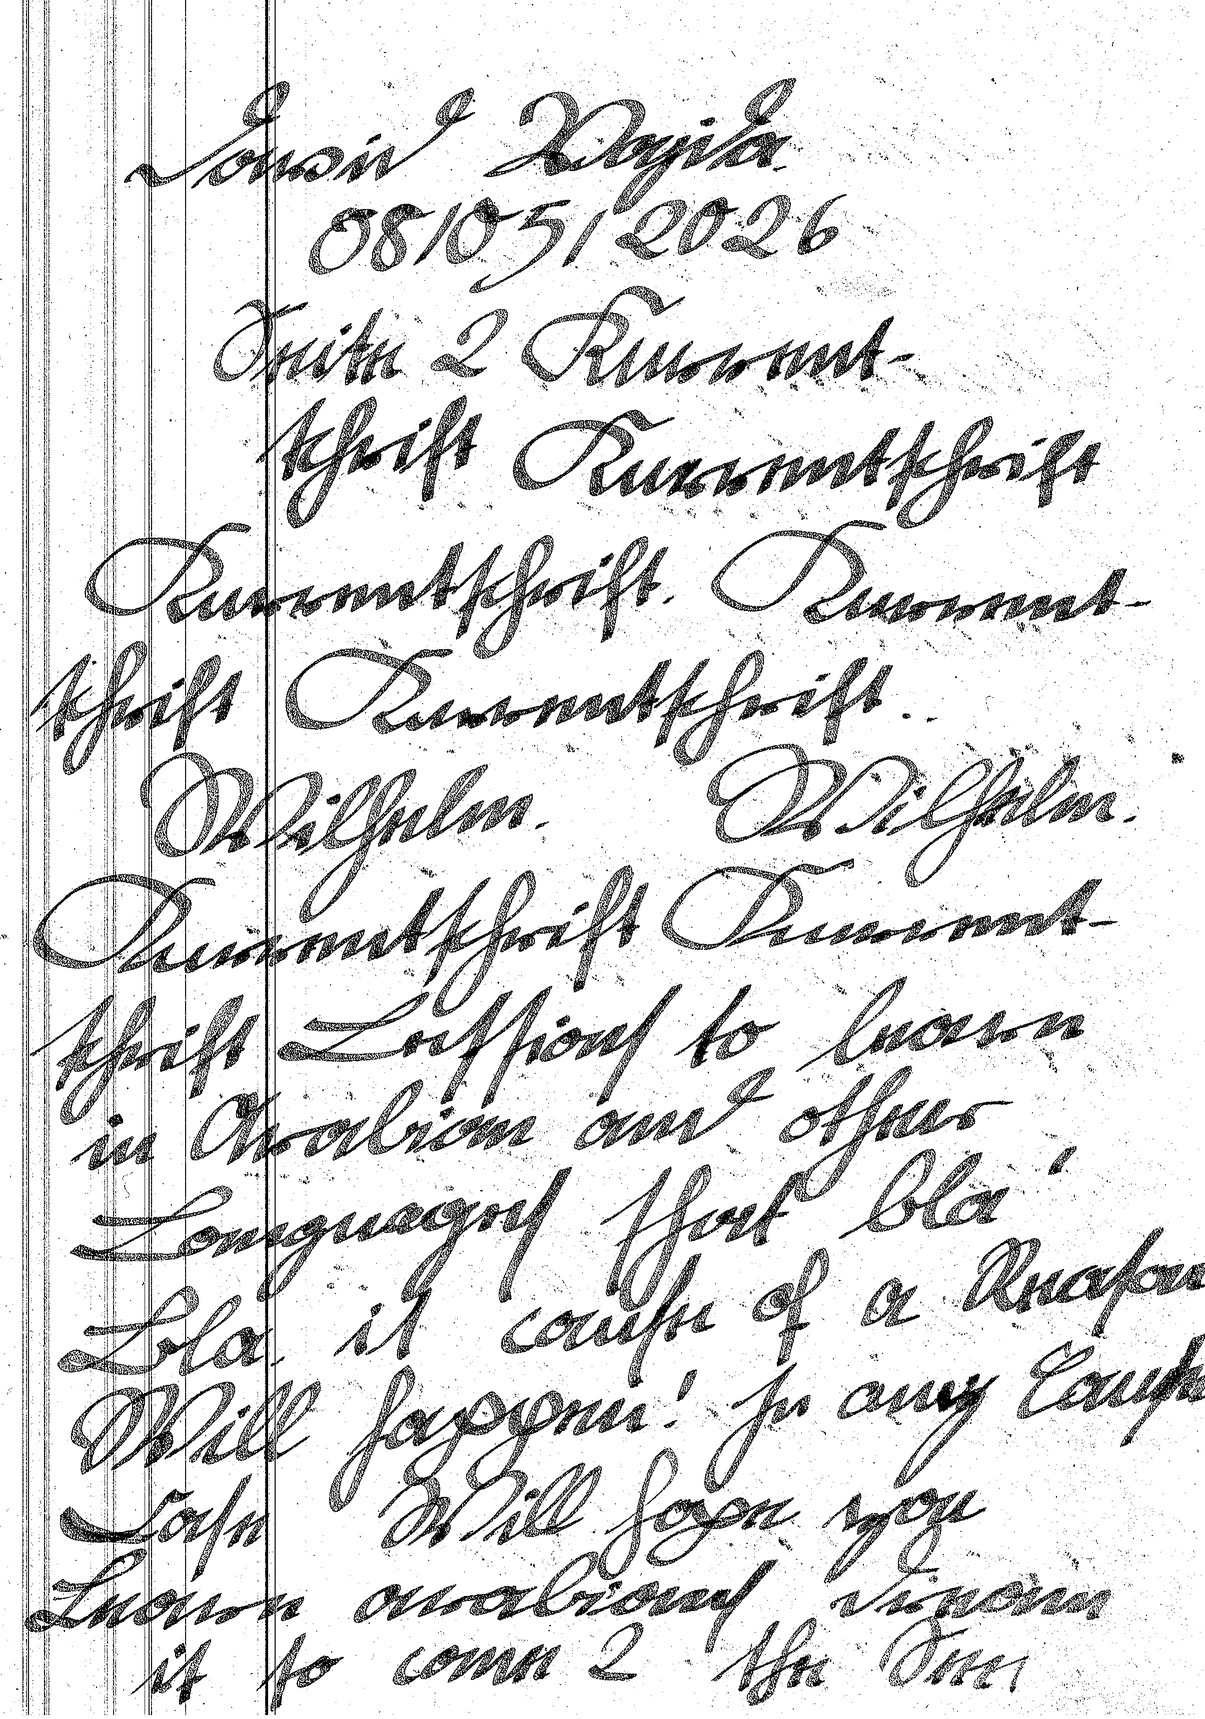 David Wajda.
08/05/2026
Seite 2 Kurrent-
schrift Kurrentschrift
Kurrentschrift. Kurrent-
schrift Kurrentschrift..
Wilhelm. Wilhelm.
Kurrentschrift Kurrent-
schrift Lessions to learn
in Arabian and other
Languages that bla'
bla. it cause of a Reason
Will happen! In any Cause
Case Will hope you
Learn arabians dream
it to come 2 the See